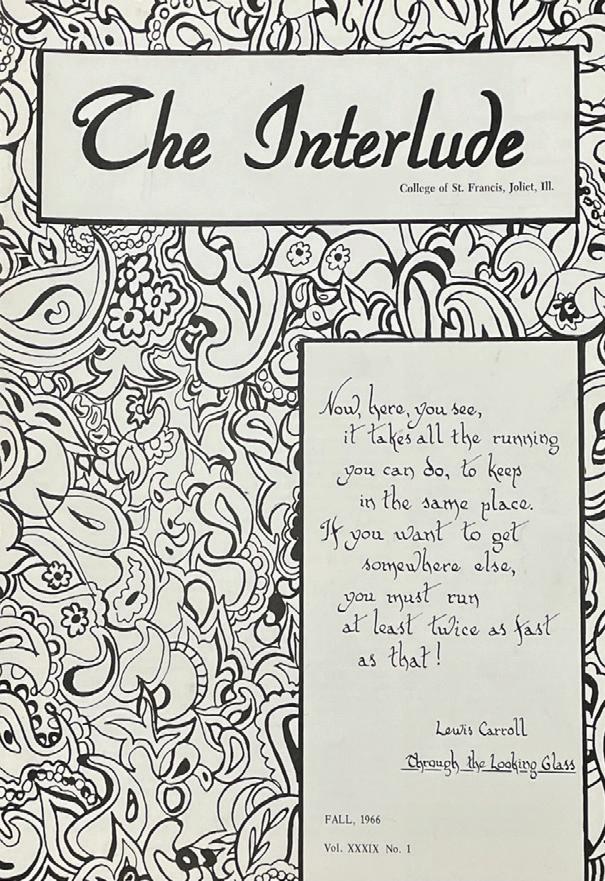 The Interlude
College of St. Francis, Joliet, Ill.
Now, here, you see,
it takes all the running
you can do, to keep
in the same place.
If you want to get
somewhere else,
you must run
at least twice as fast
as that!
Lewis Carroll
Through the Looking Glass
FALL, 1966
Vol. XXXIX No. 1